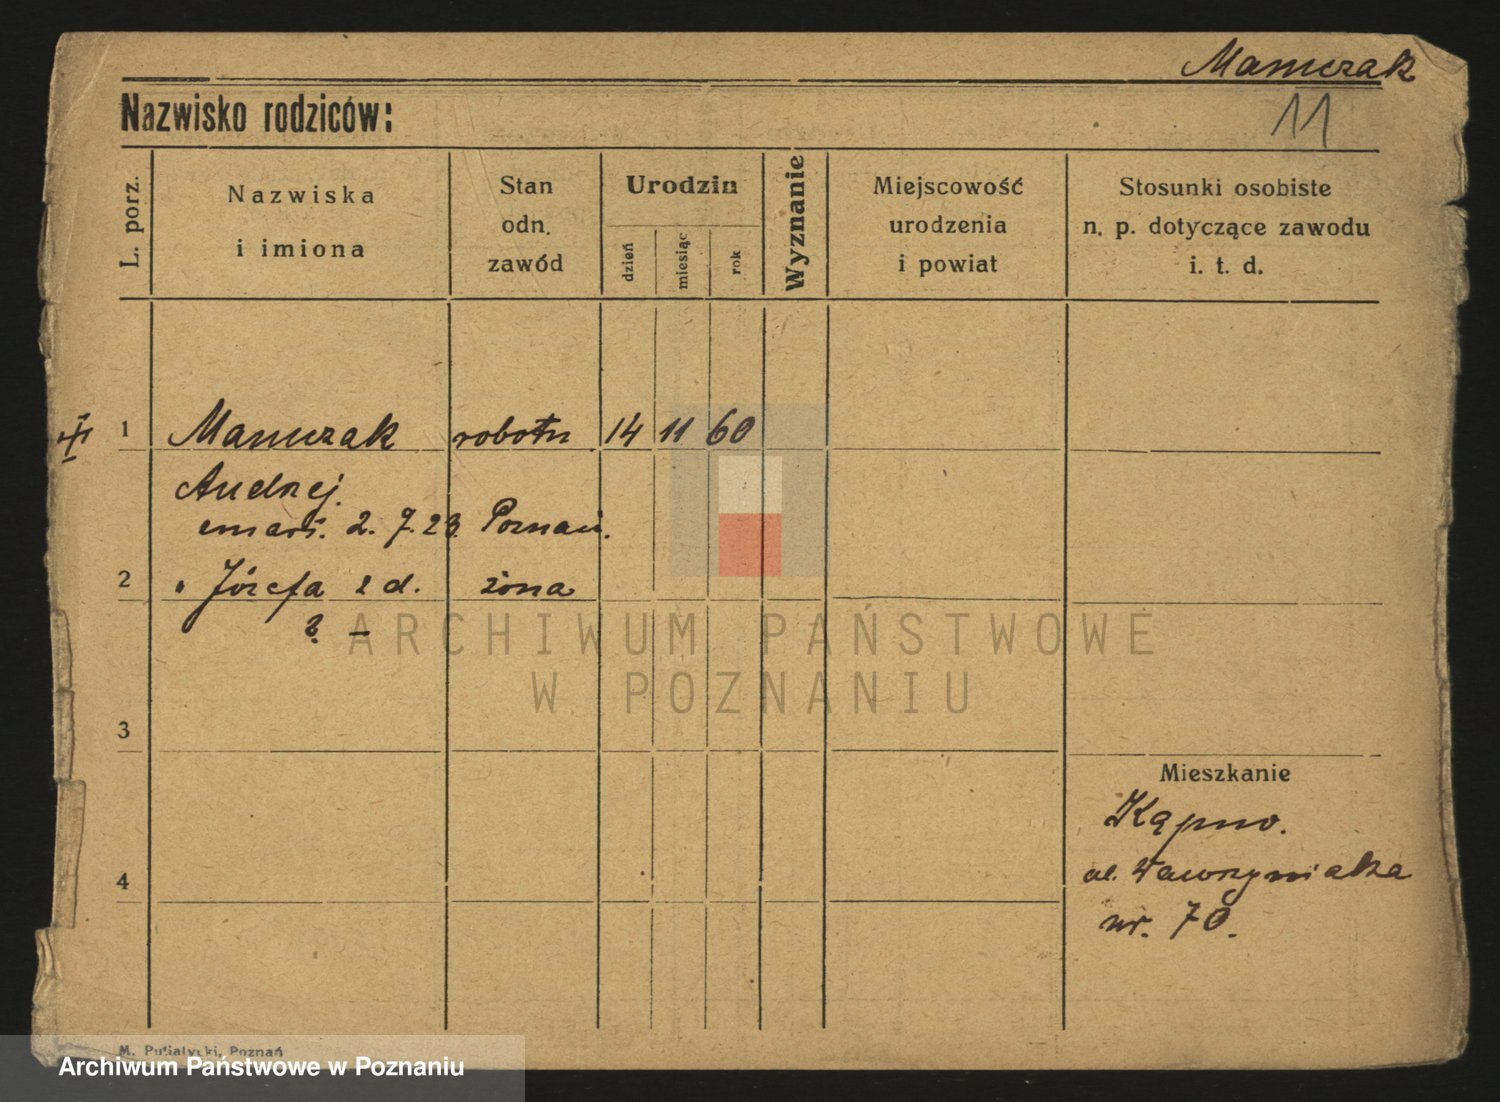 Mamczak
11
Nazwisko rodziców:
L. porz.
Nazwiska
i imiona
Stan
odn.
zawód
Urodzin
dzień
miesiąc
rok
Wyznanie
Miejscowość
urodzenia
i powiat
Stosunki osobiste
n. p. dotyczące zawodu
i. t. d.
1 robotn 14 11 60
Andrzej.
zmarł. 2. 7. 23. Poznań.
2 Józefa z d. żona
? —
3
Mieszkanie
4
ul. Wawrzyniaka
nr. 70.
ARCHIWUM PAŃSTWOWE
W POZNANIU
M. Putiatycki, Poznań
Archiwum Państwowe w Poznaniu